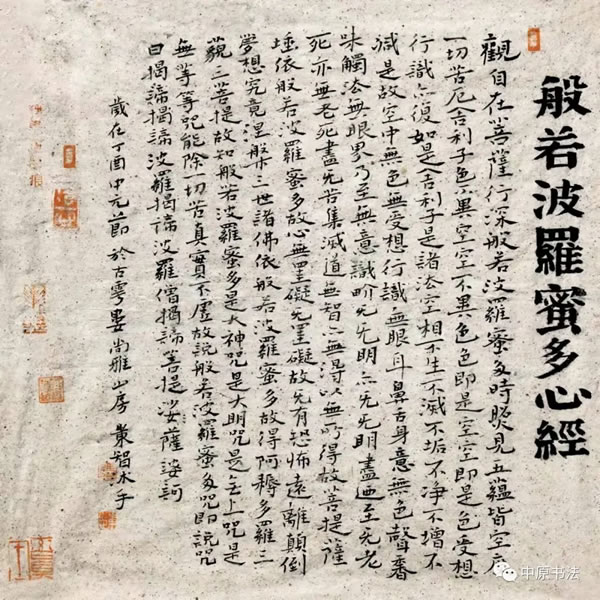 般若波羅蜜多心經
觀自在菩薩行深般若波羅蜜多時照見五蘊皆空度
一切苦厄舍利子色不異空空不異色色即是空空即是色受想
行識亦復如是舍利子是諸法空相不生不滅不垢不淨不增不
減是故空中無色無受想行識無眼耳鼻舌身意無色聲香
味觸法無眼界乃至無意識界无无明亦无无明盡迺至无老
死亦無老死盡无苦集滅道無智亦無得以無所得故菩提薩
埵依般若波羅蜜多故心無罣礙无罣礙故无有恐怖遠離顛倒
夢想究竟涅槃三世諸佛依般若波羅蜜多故得阿耨多羅三
藐三菩提故知般若波羅蜜多是大神咒是大明咒是无上咒是
無等等咒能除一切苦真實不虛故說般若波羅蜜多咒即說咒
曰揭諦揭諦波羅揭諦波羅僧揭諦菩提娑薩婆訶
歲在丁酉中元節於古雩婁尚雅山房智冰手
中原书法